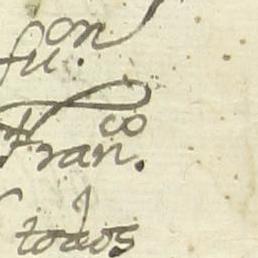 fu.on
Fran.co
todos